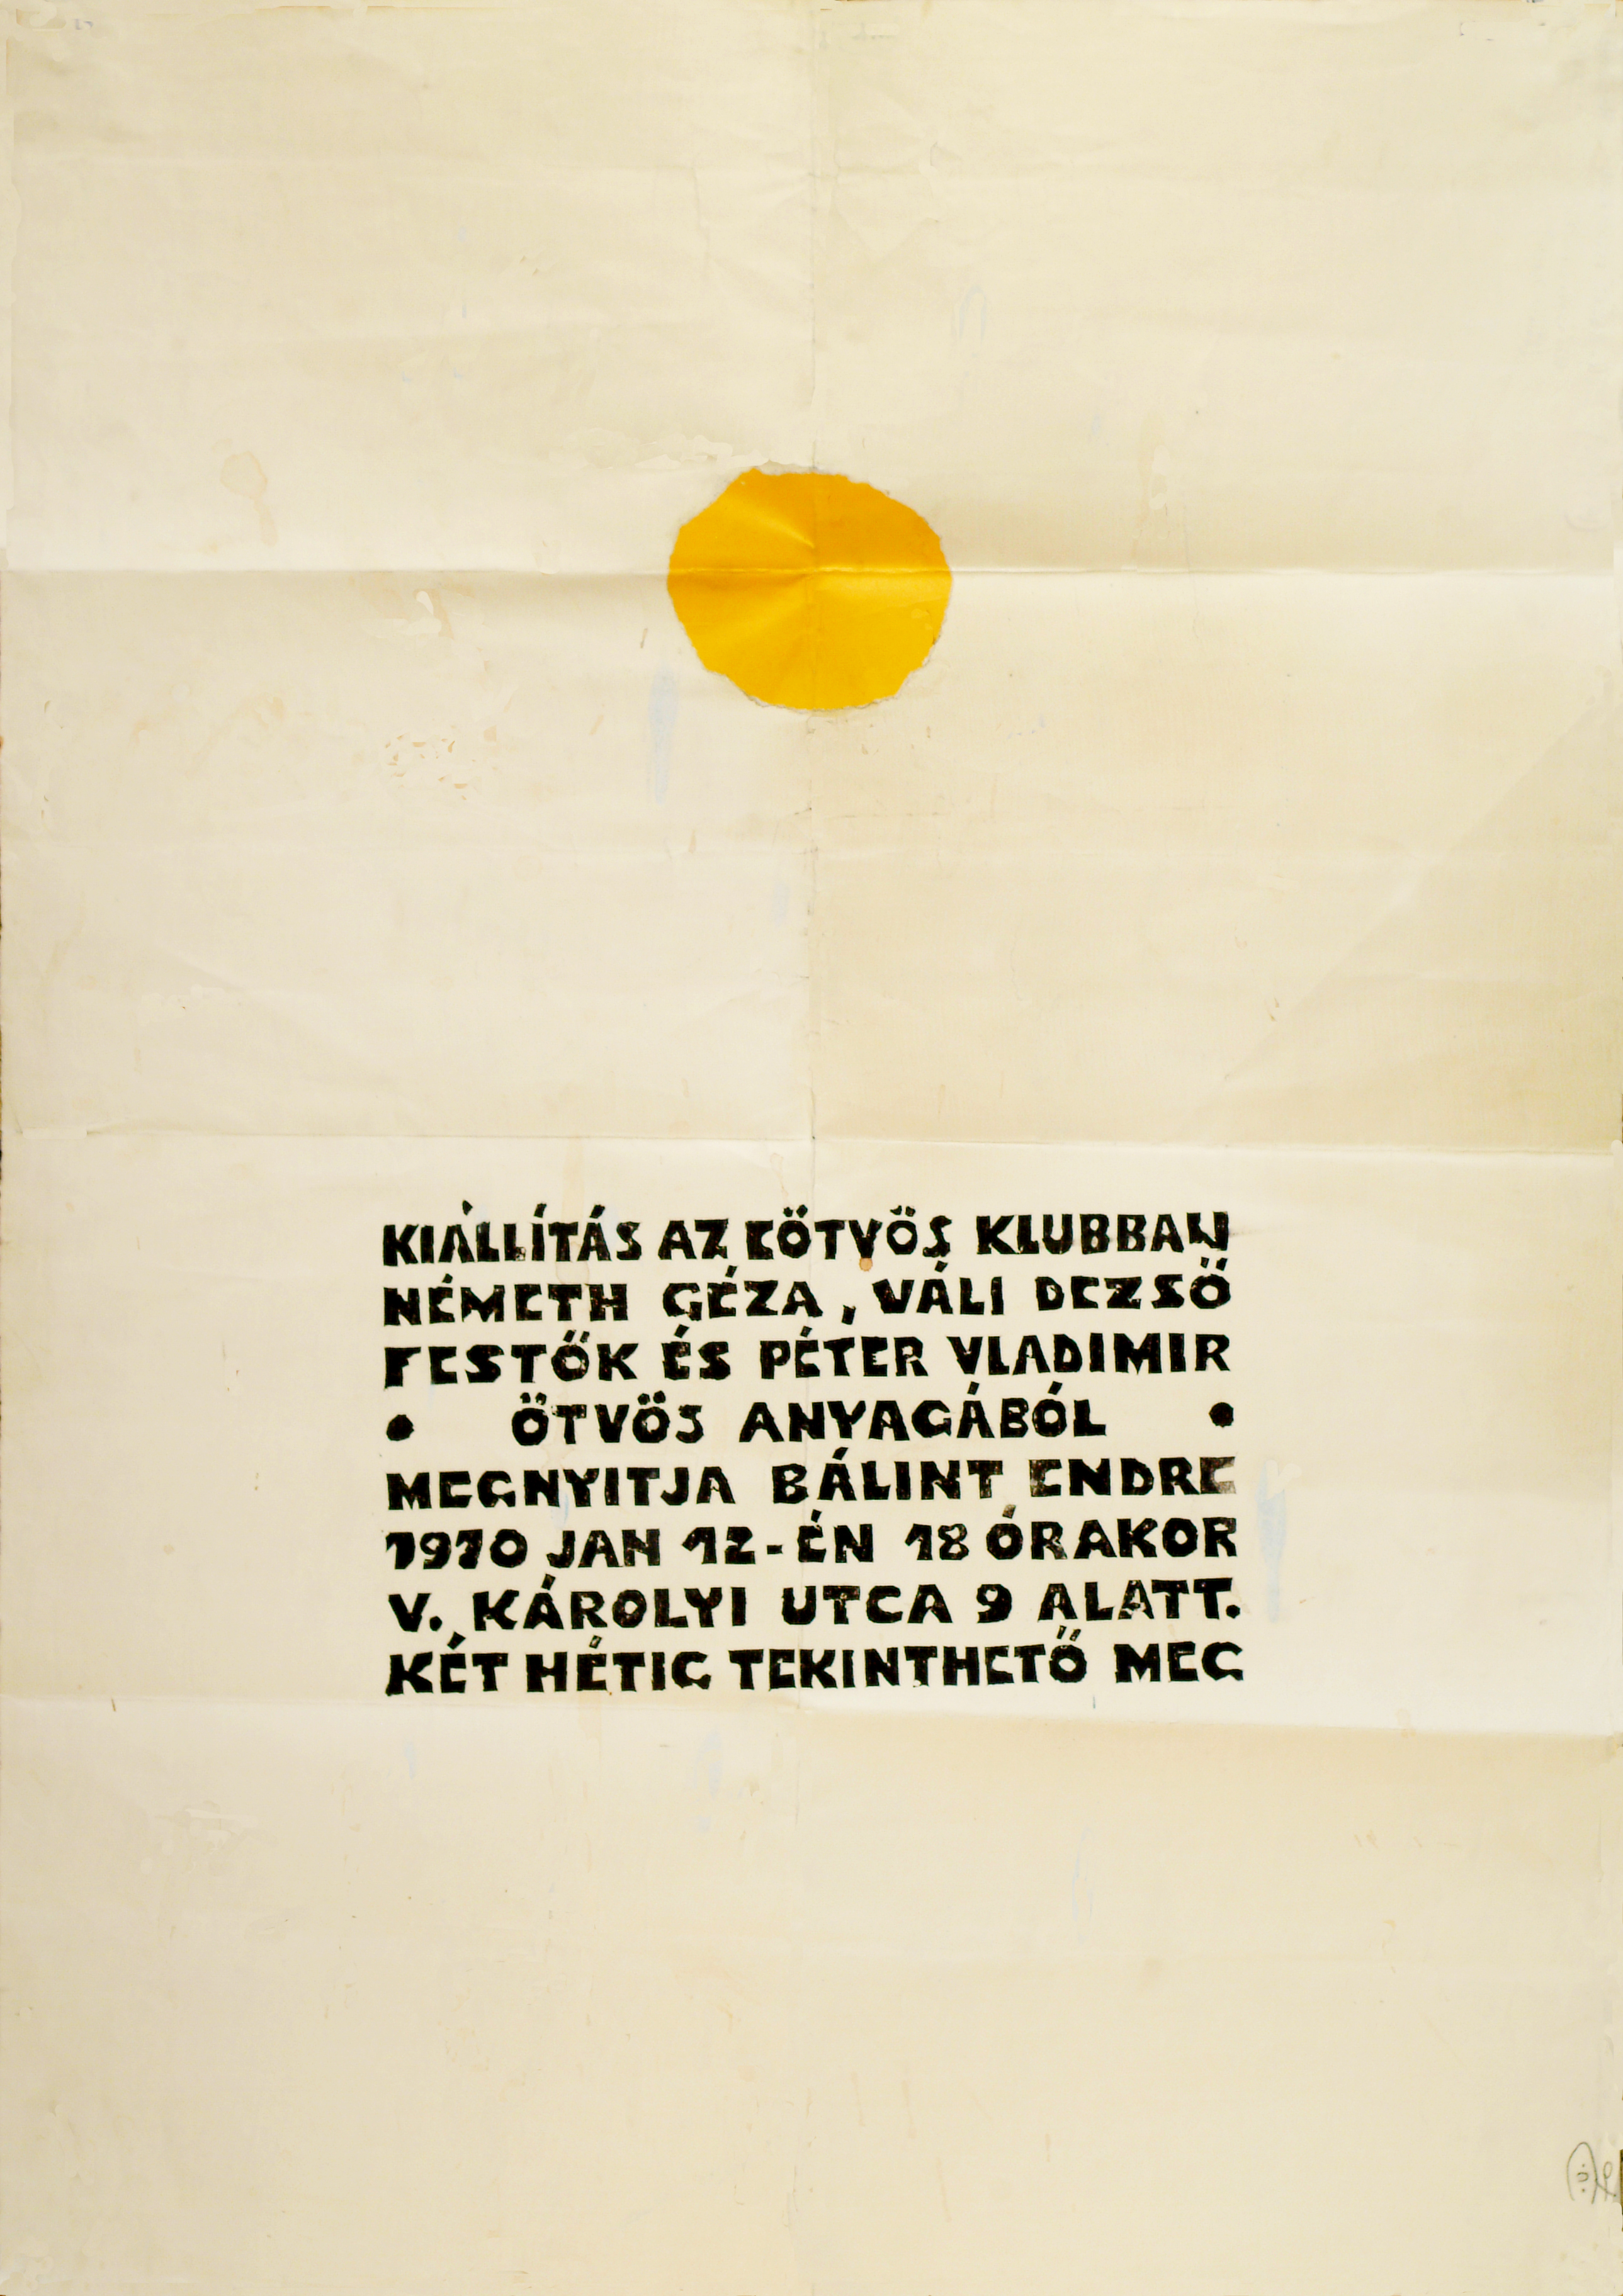 KIÁLLÍTÁS AZ EÖTVÖS KLUBBAN
NÉMETH GÉZA, VÁLI DEZSŐ
FESTŐK ÉS PÉTER VLADIMIR
• ÖTVÖS ANYAGÁBÓL •
MEGNYITJA BÁLINT ENDRE
1970 JAN 12-ÉN 18 ÓRAKOR
V. KÁROLYI UTCA 9 ALATT.
KÉT HÉTIG TEKINTHETŐ MEG